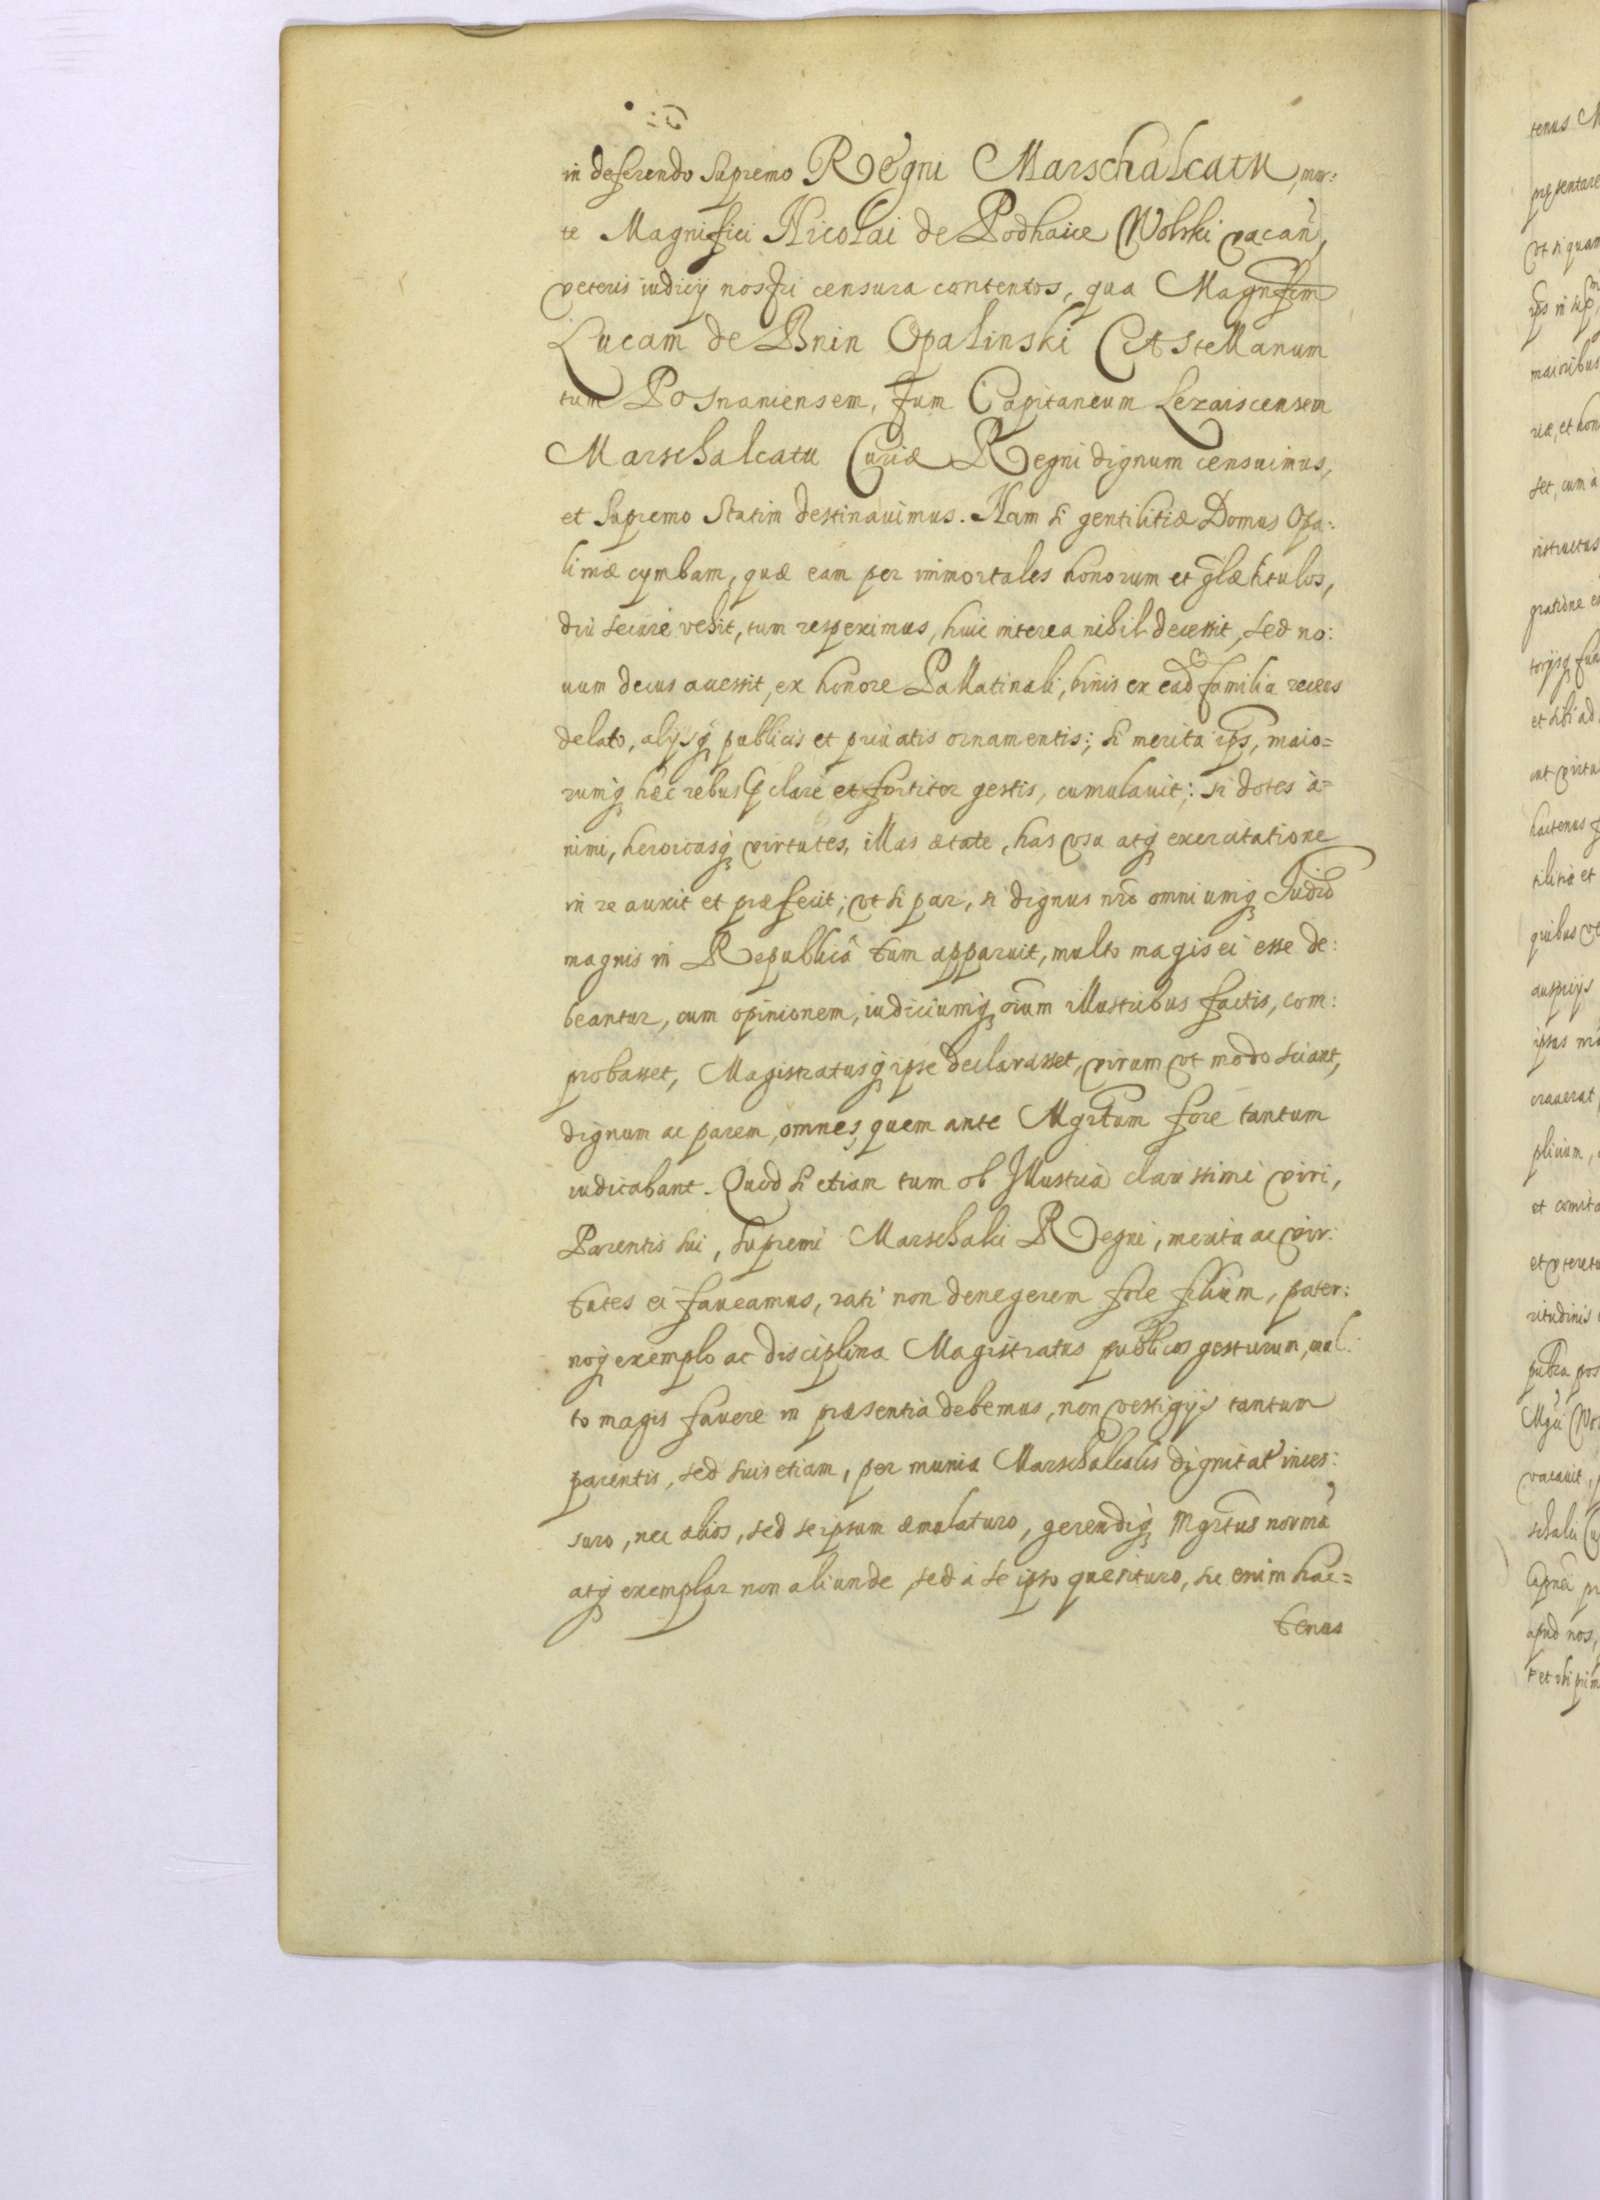 in deferendo Supremo Regni Marschalcatu, mor:
te Magnifici Nicolai de Podhaice Wolski vacan̄,
veteris iudicij nostri censura contentos, qua Magnifcm
Lucam de Bnin Opalinski CAstellanum
tum Posnaniensem, tum Capitaneum Lezaiscensem
Marschalcatu Curiæ Regni dignum censuimus,
et Supremo Statim destinauimus. Nam si gentilitiæ Domus Opa:
liniæ cymbam, quæ eam per immortales honorum et glæ titulos,
diù secure vehit, tum respeximus, huic interea nihil decessit, sed no:
uum decus accessit, ex honore Pallatinali, binis ex ead familia recēs
delato, alijsq publicis et priuatis ornamentis; si merita ips, maio=
rumq hæc rebus pclare et fortiter gestis, cumulauit; si dotes a=
nimi, heroicasq virtutes, illas ætate, has vsu atq exercitatione
in re auxit et præfecit; vt si par, si dignus nro omniumq Iudio
magnis in Republicâ tum apparuit, multo magis ei esse de:
beantur, cum opinionem, iudiciumq oium illustribus factis, com:
probasset, Magistratusq ipse declarasset, virum vt modo sciant,
dignum ac parem, omnes, quem ante Mgrtum fore tantum
iudicabant. Quod si etiam tum ob Illustria clarissimi viri,
Parentis sui, Supremi Marschalci Regni, merita ac vir:
tutes ei faueamus, rati non degenerem fore filium, pater:
noq exemplo ac disciplina Magistratus publicos gesturum, mul:
to magis fauere in præsentia debemus, non vestigijs tantum
parentis, sed suis etiam, per munia Marschalcalis dignitat inces:
suro, nec alios, sed se ipsum æmulaturo, gerendiq Mgrtus normā
atq exemplar non aliunde, sed à se ipso quesituro, sic enim hac=
tenus